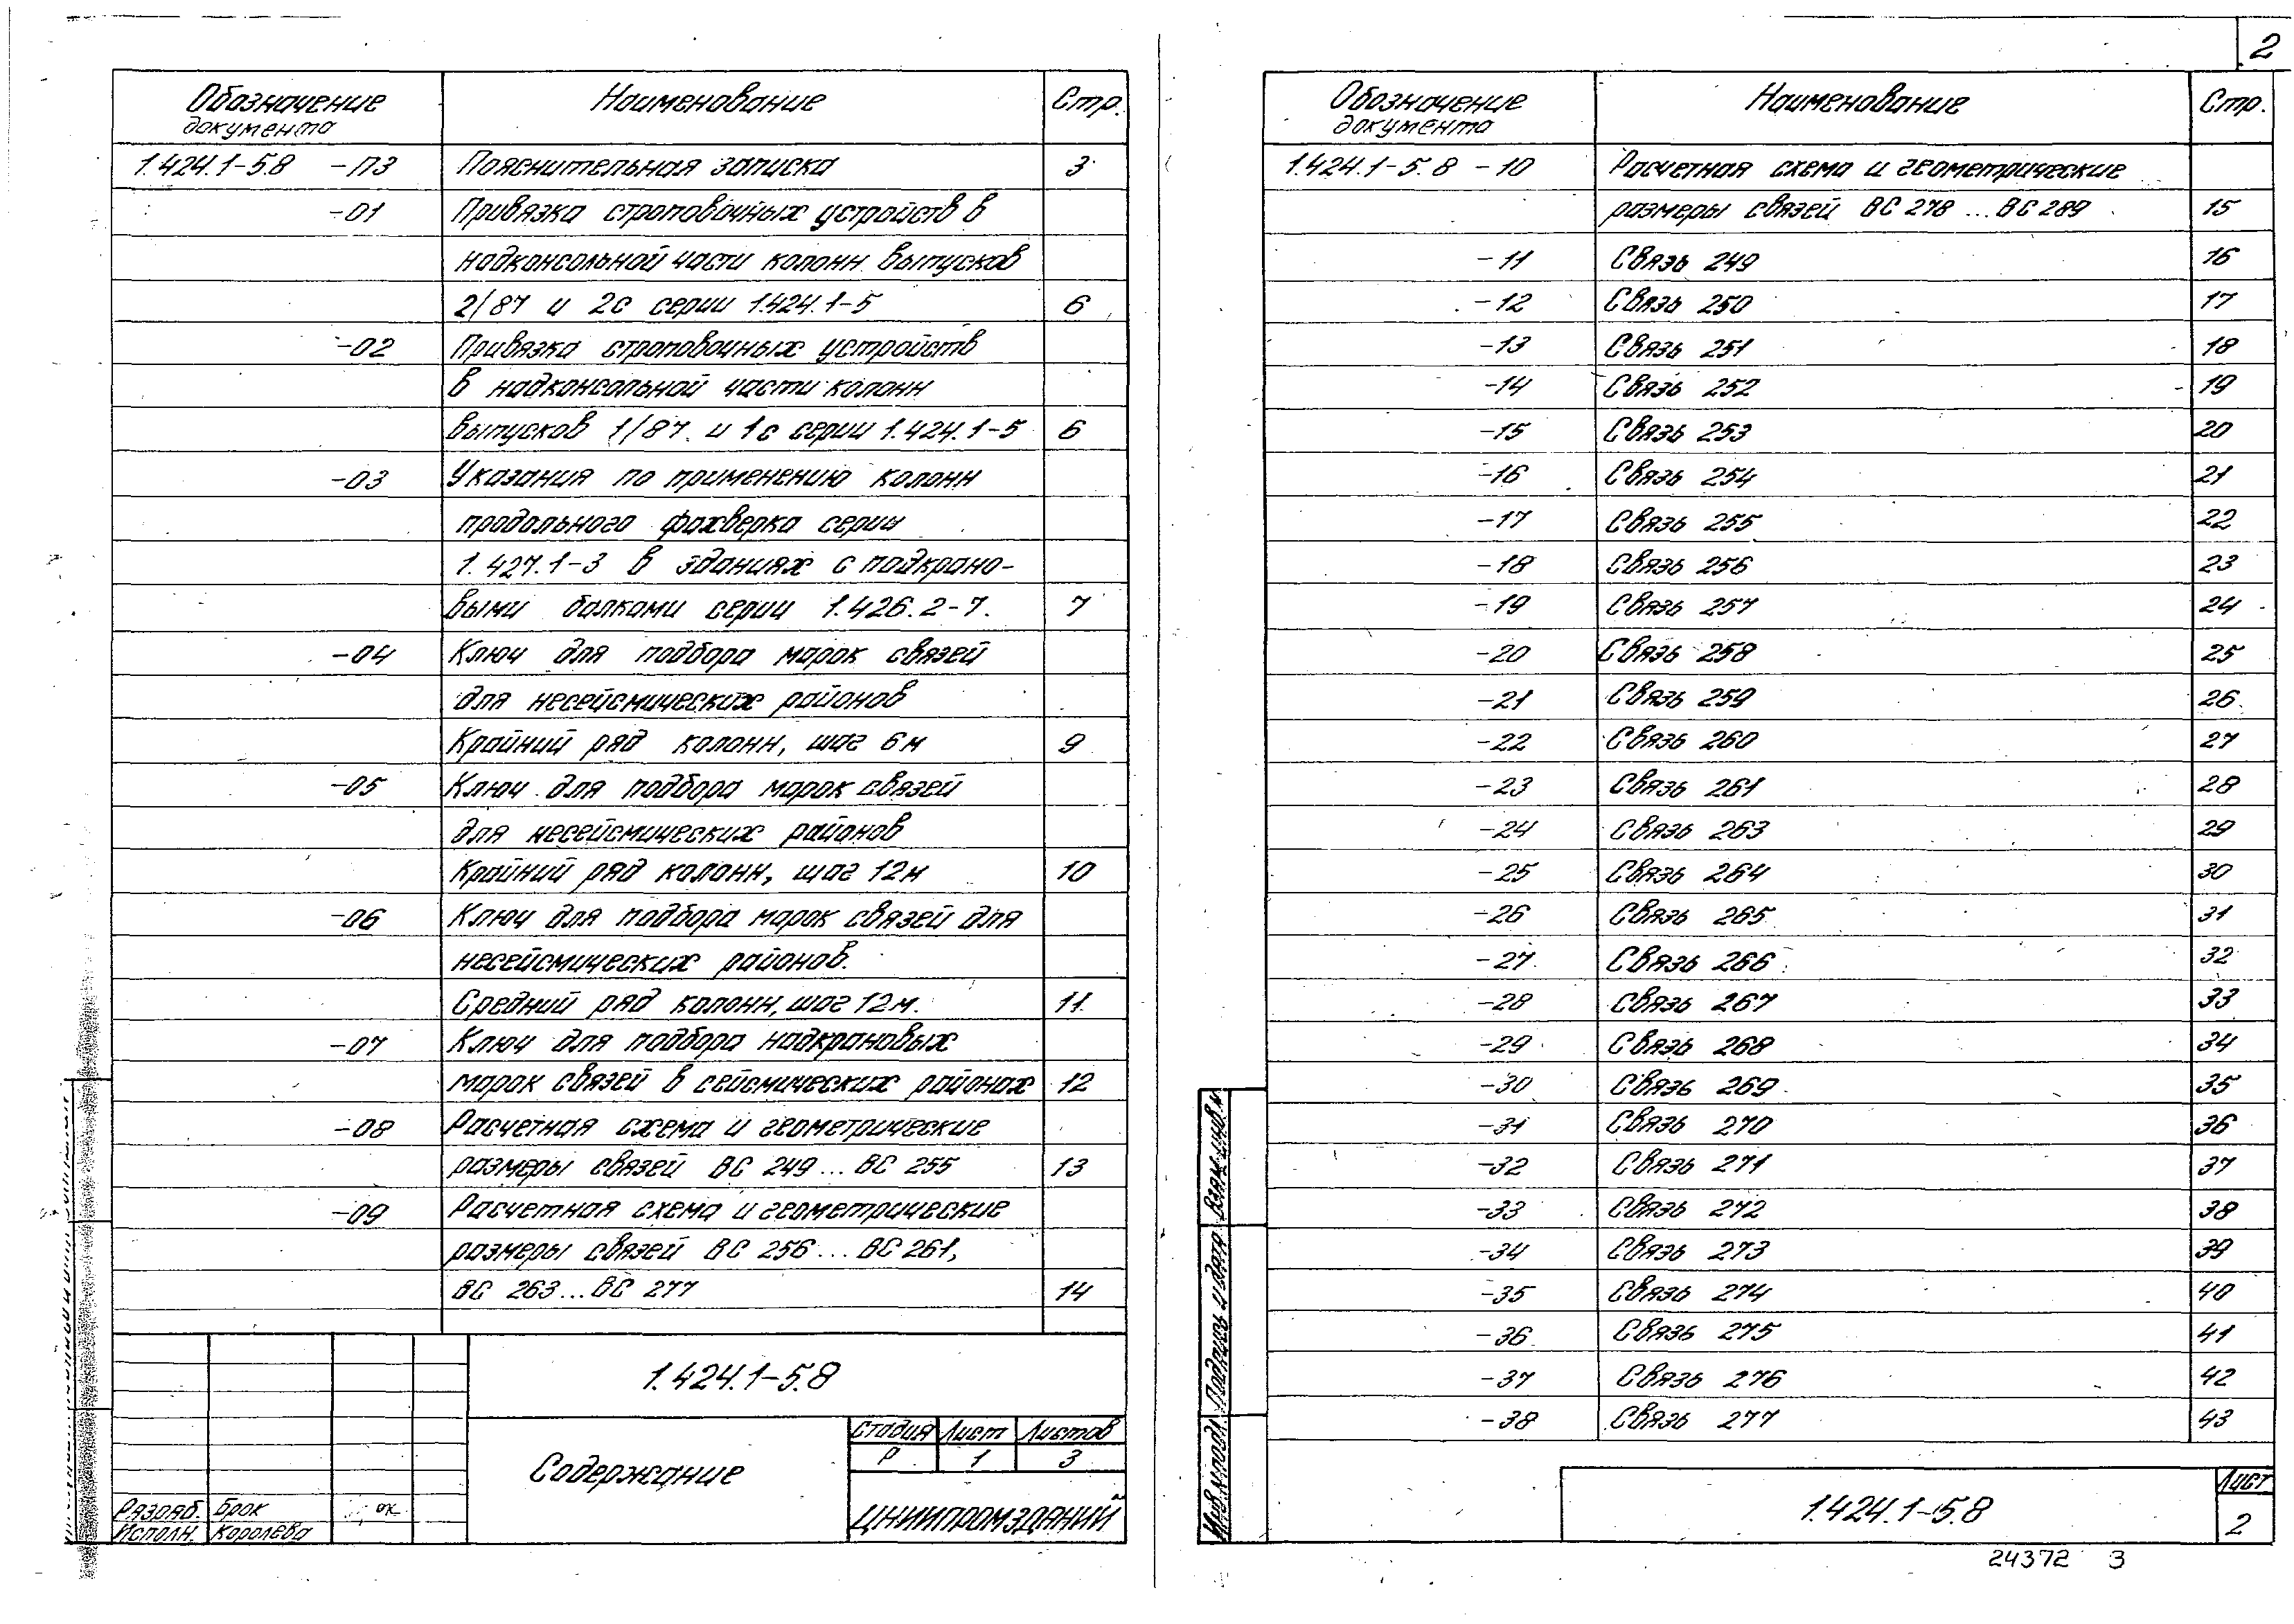 Обозначение документа Наименование Стр.
1.424.1-5.8 -ПЗ Пояснительная записка 3
-01 Привязка строповочных устройств в
надконсольной части колонн выпусков
2/87 и 2с серии 1.424.1-5 6
-02 Привязка строповочных устройств
в надконсольной части колонн
выпусков 1/87 и 1с серии 1.424.1-5 6
-03 Указания по применению колонн
продольного фахверка серии
1.427.1-3 в зданиях с подкрано-
выми балками серии 1.426.2-7. 7
-04 Ключ для подбора марок связей
для несейсмических районов
Крайний ряд колонн, шаг 6м 9
-05 Ключ для подбора марок связей
для несейсмических районов
Крайний ряд колонн, шаг 12м 10
-06 Ключ для подбора марок связей для
несейсмических районов.
Средний ряд колонн, шаг 12м. 11
-07 Ключ для подбора надкрановых
марок связей в сейсмических районах 12
-08 Расчетная схема и геометрические
размеры связей ВС 249...ВС 255 13
-09 Расчетная схема и геометрические
размеры связей ВС 256...ВС 261,
ВС 263...ВС 277 14
1.424.1-5.8
Содержание
Стадия Лист Листов
Р 1 3
ЦНИИПРОМЗДАНИЙ
Разраб. Брок
Исполн. Королева
2
Обозначение документа Наименование Стр.
1.424.1-5.8 -10 Расчетная схема и геометрические
размеры связей ВС 278...ВС 289 15
-11 Связь 249 16
-12 Связь 250 17
-13 Связь 251 18
-14 Связь 252 19
-15 Связь 253 20
-16 Связь 254 21
-17 Связь 255 22
-18 Связь 256 23
-19 Связь 257 24
-20 Связь 258 25
-21 Связь 259 26
-22 Связь 260 27
-23 Связь 261 28
-24 Связь 263 29
-25 Связь 264 30
-26 Связь 265 31
-27 Связь 266 32
-28 Связь 267 33
-29 Связь 268 34
-30 Связь 269 35
-31 Связь 270 36
-32 Связь 271 37
-33 Связь 272 38
-34 Связь 273 39
-35 Связь 274 40
-36 Связь 275 41
-37 Связь 276 42
-38 Связь 277 43
Инв.№подл. Подпись и дата Взам.инв.№
1.424.1-5.8
Лист
2
24372 3